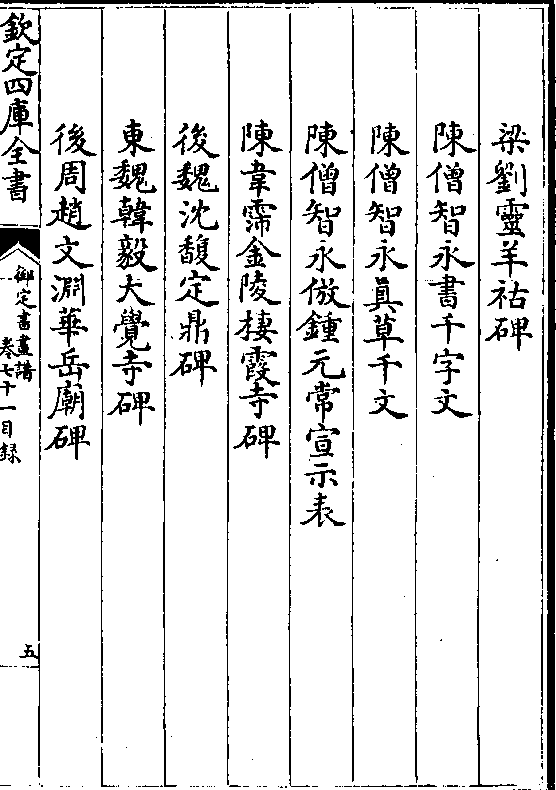 梁劉靈羊祜碑
陳僧智永書千字文
陳僧智永眞草千文
陳僧智永倣鍾元常宣示表
陳韋霈金陵棲霞寺碑
後魏沈馥定鼎碑
東魏韓毅大覺寺碑
後周趙文淵華岳廟碑
欽定四庫全書
御定書畫譜
卷七十一目録
五